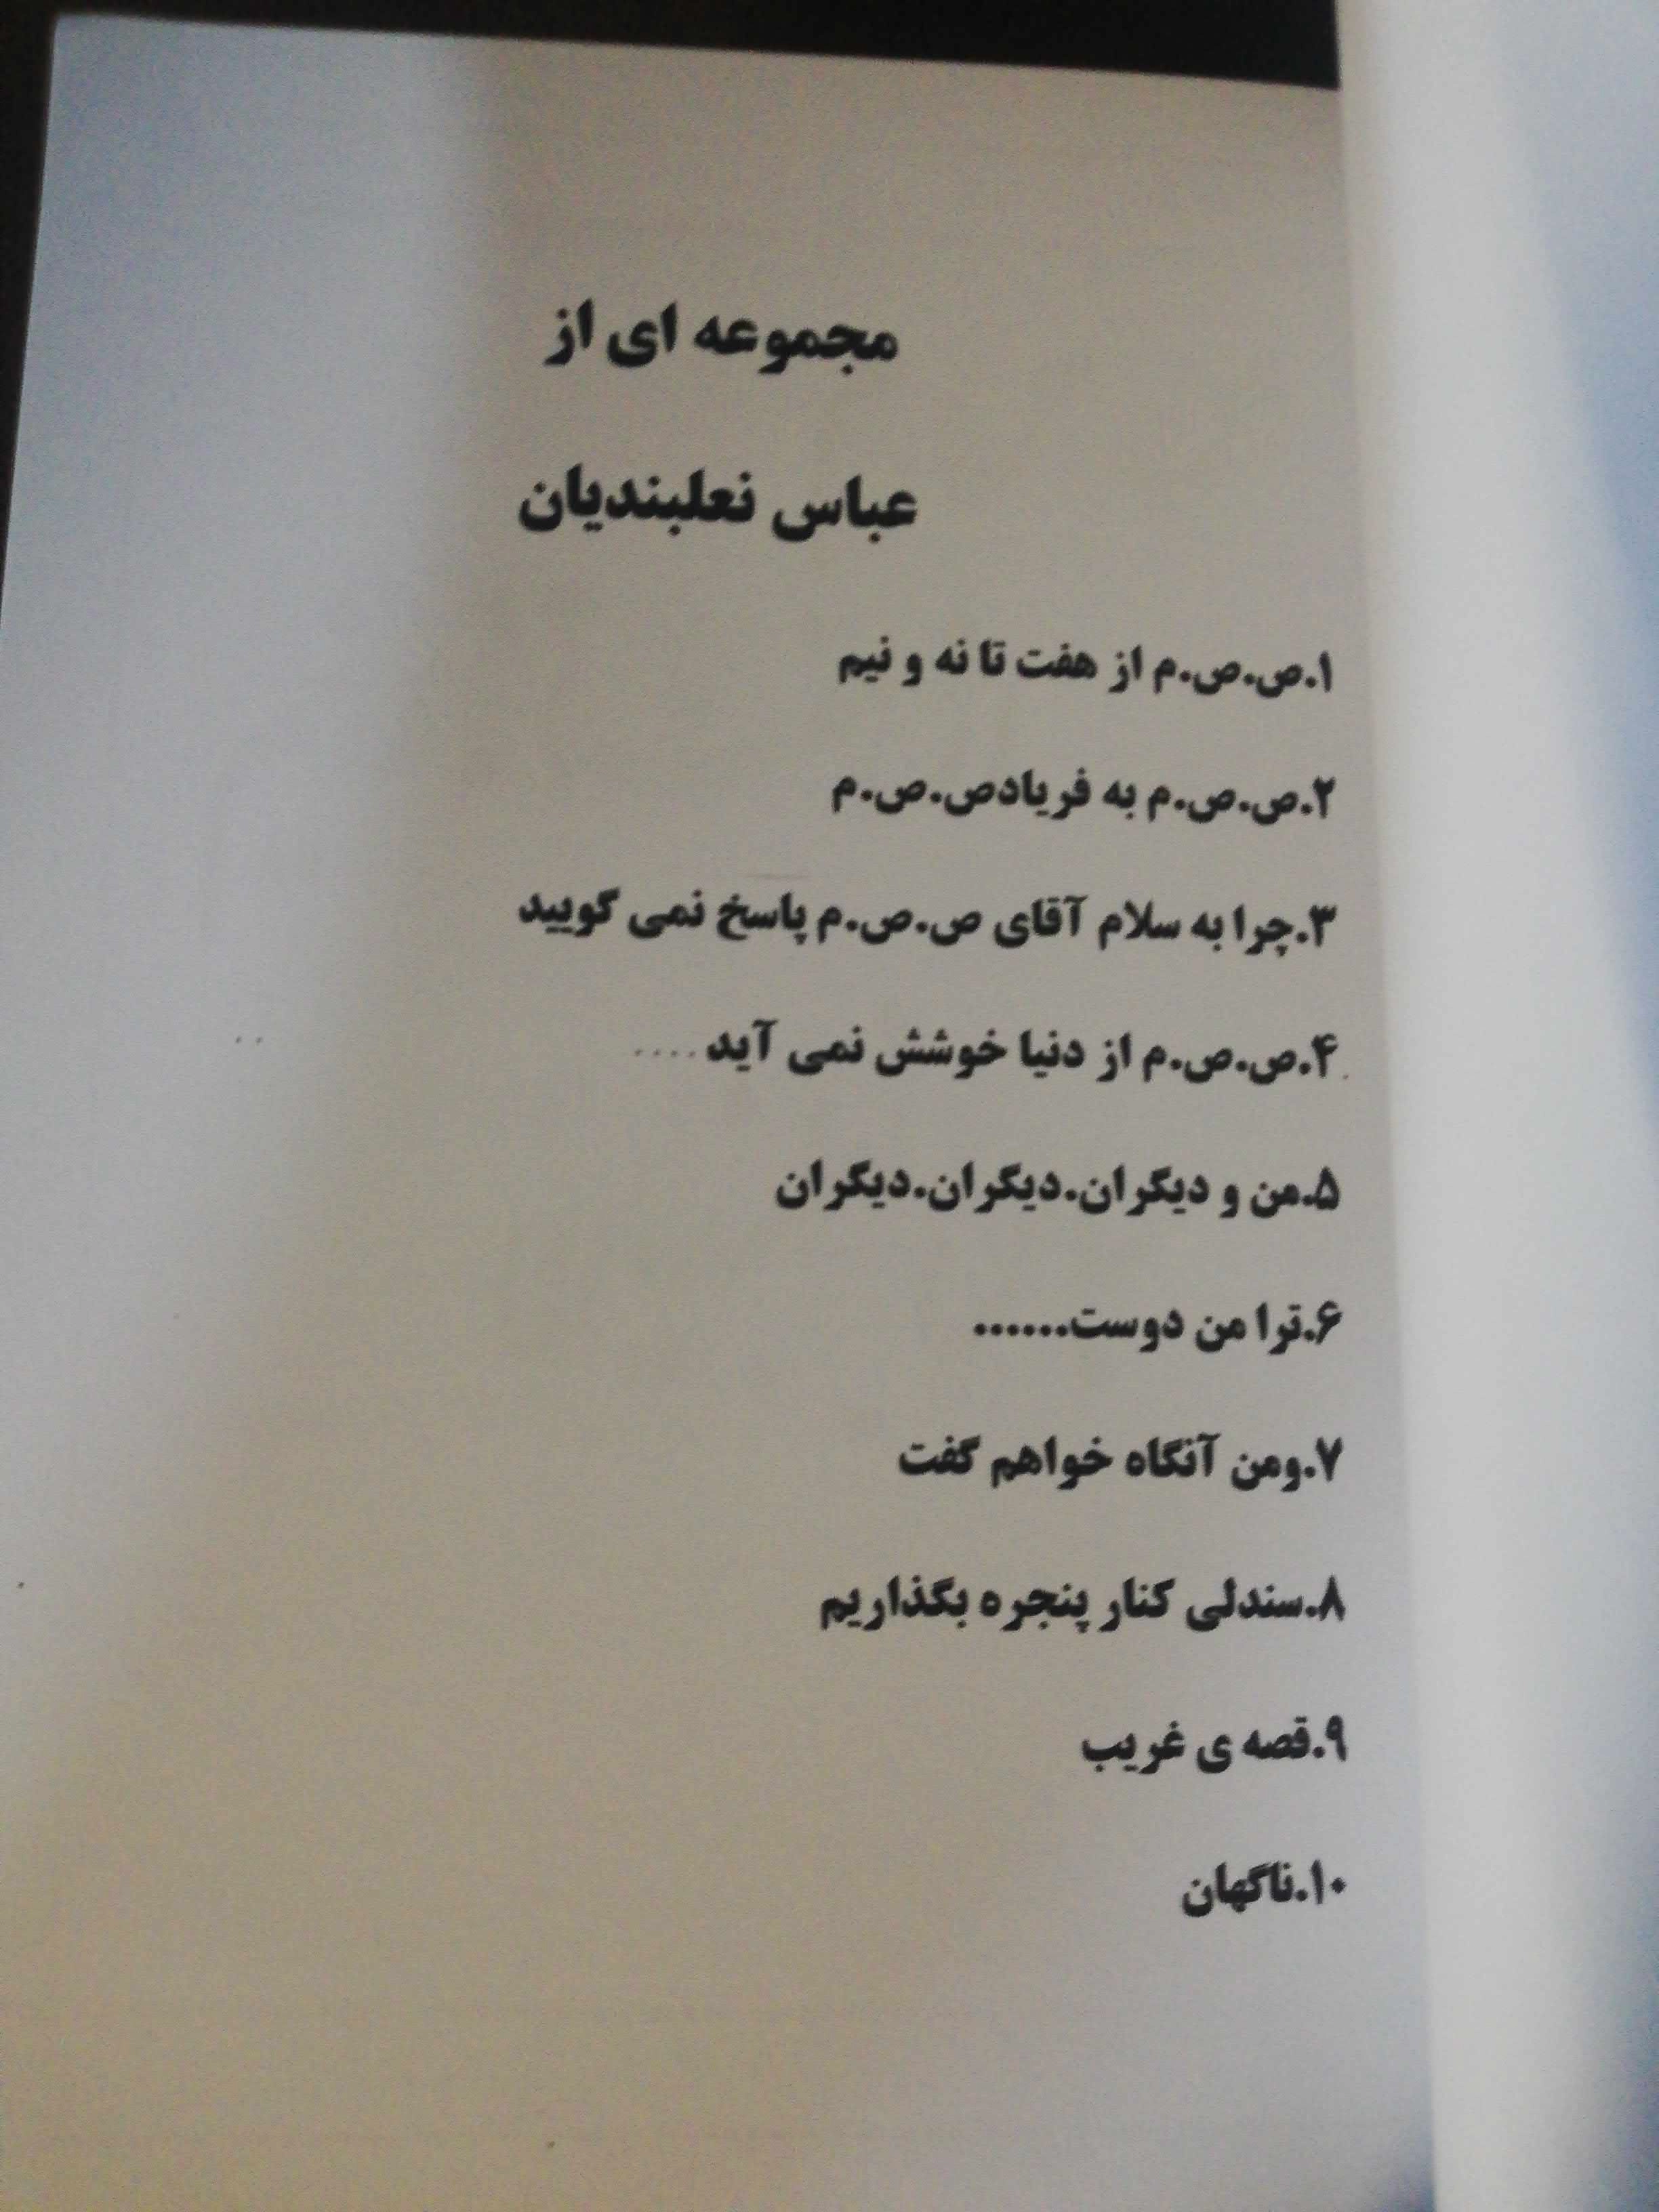 مجموعه ای از
عباس نعلبندیان
۱.ص.ص.م از هفت تا نه و نیم
۲.ص.ص.م به فریادص.ص.م
۳.چرا به سلام آقای ص.ص.م پاسخ نمی گویید
۴.ص.ص.م از دنیا خوشش نمی آید....
۵.من و دیگران.دیگران.دیگران
۶.ترا من دوست......
۷.ومن آنگاه خواهم گفت
۸.سندلی کنار پنجره بگذاریم
۹.قصه ی غریب
۱۰.ناگهان